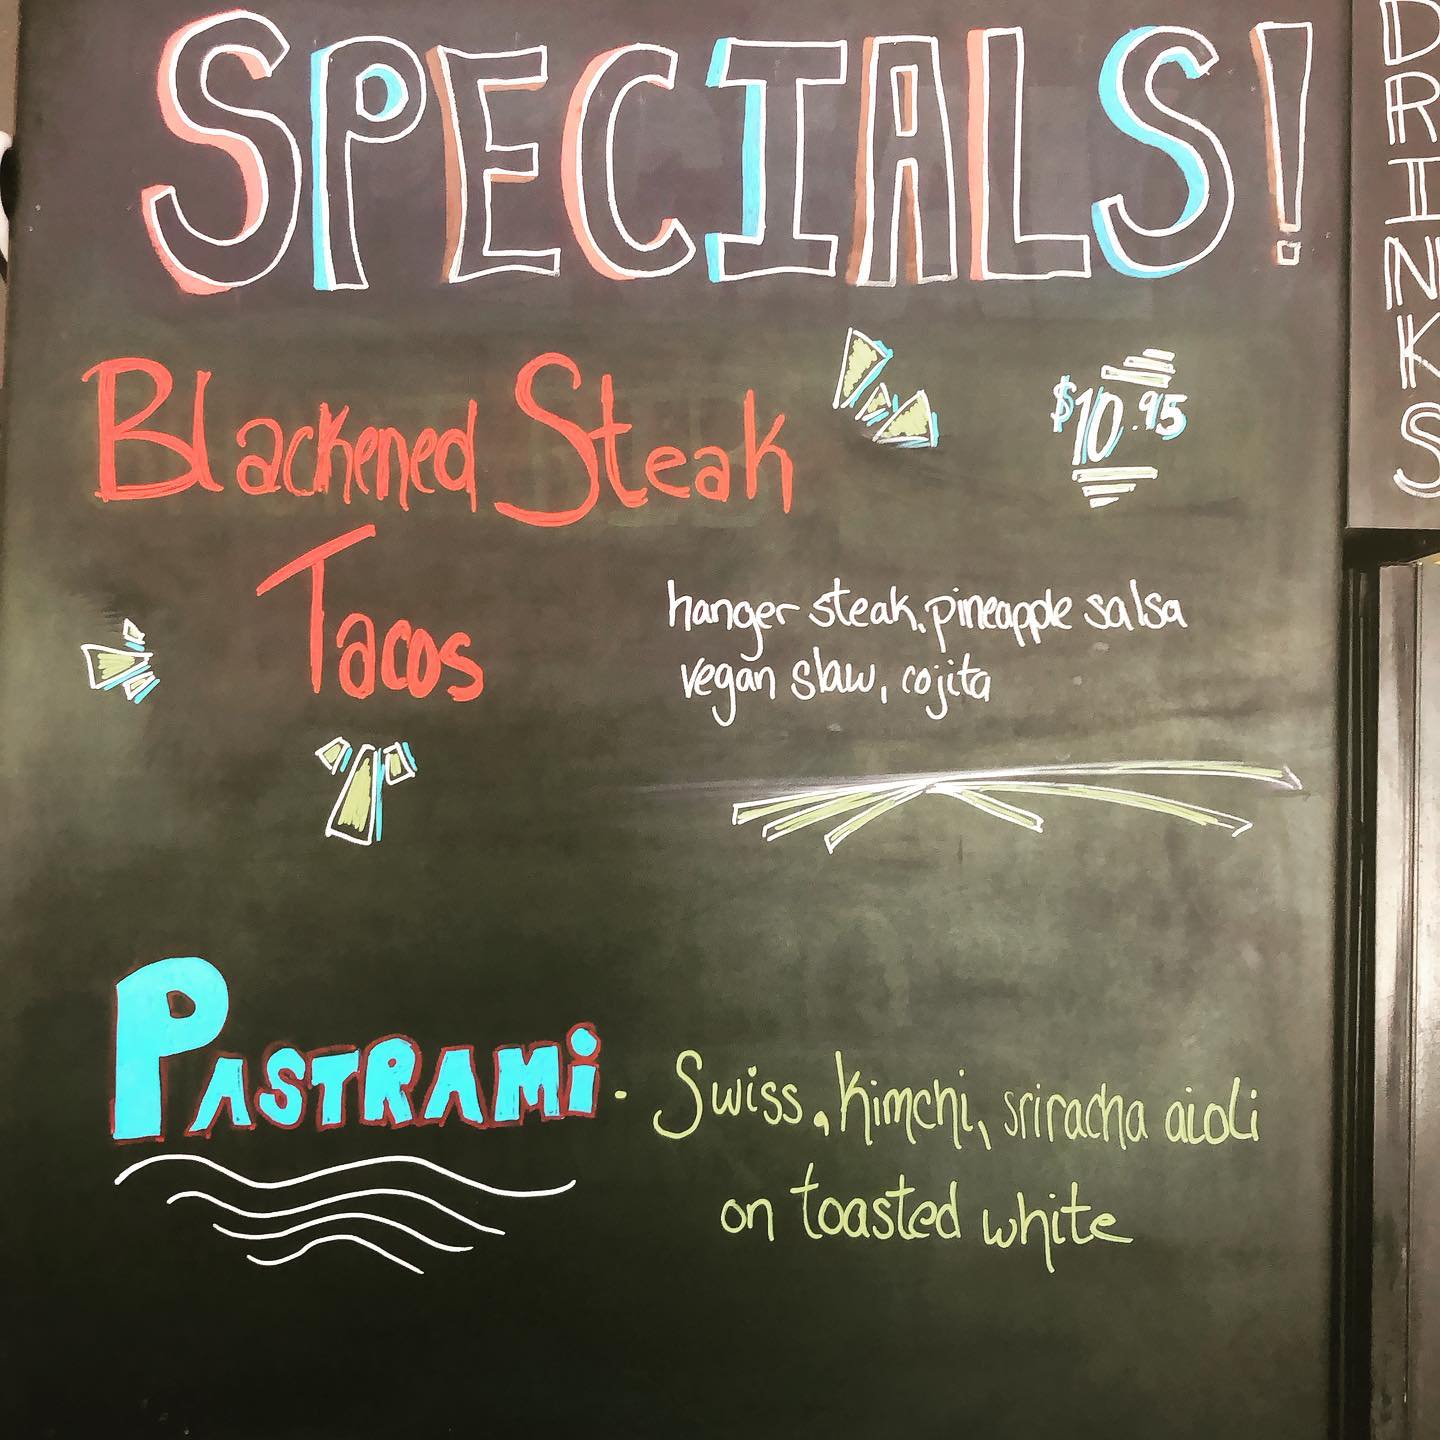 SPECIALS!
Blackened Steak
$10.95
Tacos
hanger steak, pineapple salsa
vegan slaw, cojita
PASTRAMi.
Swiss, Kimchi, sriracha aioli
on toasted white
DRINKS